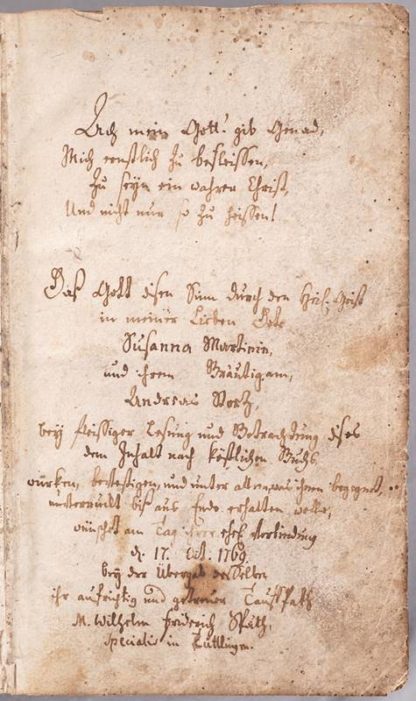 Ach mein Gott! gib Gnad,
Mich ernstlich zu befleissen,
Zu seyn ein wahrer Christ,
Und nicht nur so zu heissen!
Daß Gott disen Sinn durch den Heil. Geist
in meiner Lieben
Susanna Martinin,
und ihrem Bräutigam,
Andreas
bey fleissiger Lesung und Betrachtung dises
dem Inhalt nach köstlichen Buchs
würken, bevestigen, und unter allem, was ihnen begegnet,
unverrückt biß ans Ende erhalten wolle,
wünschet am Tag ihrer ehel. Verbindung
d. 17. Oct. 1769.
bey der Übergab desselben
ihr aufrichtig und getreuer Tauff Path
M. Wilhelm Friderich Späth,
Specialis in Tuttlingen.